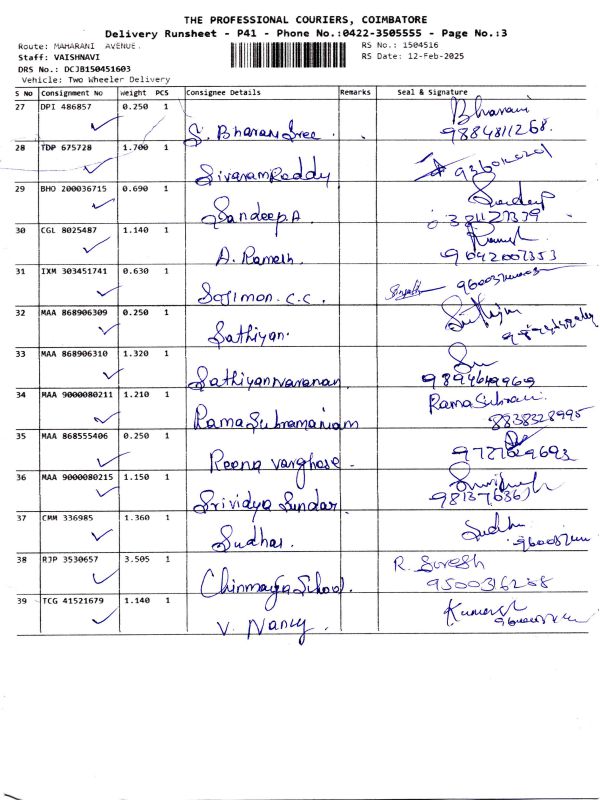 THE PROFESSIONAL COURIERS, COIMBATORE
Delivery Runsheet - P41 - Phone No.:0422-3505555 - Page No.:3
Route: MAHARANI AVENUE. RS No.: 1504516
Staff: VAISHNAVI RS Date: 12-Feb-2025
DRS No.: DCJB150451603
Vehicle: Two Wheeler Delivery
S No Consignment No Weight PCS Consignee Details Remarks Seal & Signature
27 DPI 486857 0.250 1 S. Bharani Sree Bharani
9884811268.
28 TDP 675728 1.700 1 Sivaram Reddy
29 BHO 200036715 0.690 1 Sandeep.A Sandeep
30 CGL 8025487 1.140 1 A. Ramesh Ramesh
9042007353
31 IXM 303451741 0.630 1 Sojimon. C.C.
32 MAA 868906309 0.250 1 Sathiyan.
33 MAA 868906310 1.320 1 Sathiyannaranan
9894649969
34 MAA 9000080211 1.210 1 Rama Subramaniam Rama Subrani
8838328995
35 MAA 868555406 0.250 1 Reena varghese.
36 MAA 9000080215 1.150 1 Srividya Sundar.
37 CMM 336985 1.360 1 Sudhar.
38 RJP 3530657 3.505 1 Chinmaya School. R. Suresh
9500316268
39 TCG 41521679 1.140 1 V. Nancy. Kumaresh